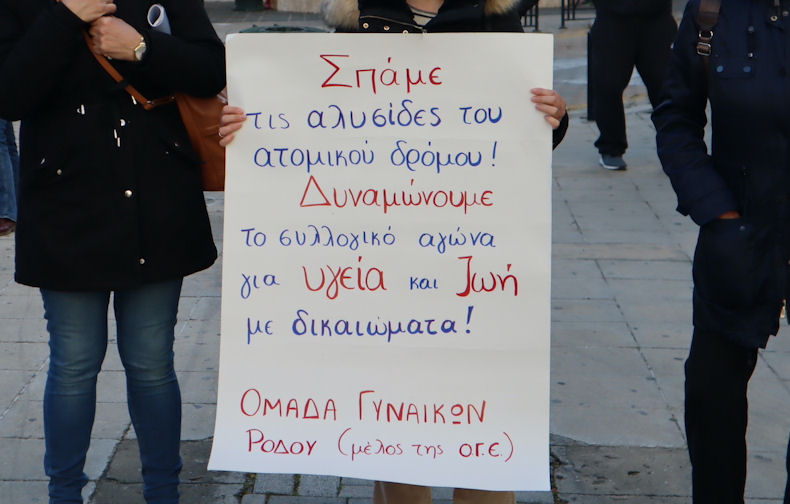 Σπάμε
τις αλυσίδες του
ατομικού δρόμου!
Δυναμώνουμε
το συλλογικό αγώνα
για υγεία και ζωή
με δικαιώματα!
ΟΜΑΔΑ ΓΥΝΑΙΚΩΝ
ΡΟΔΟΥ (μέλος της ο.γ.ε.)